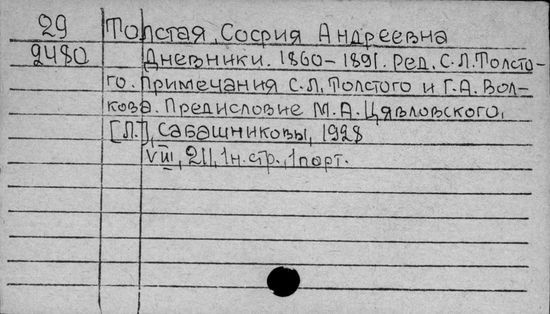 29 Толстая, София Андреевна
9480 Дневники. 1860-1891. Ред. С.Л. Толсто-
го. Примечания С.Л. Толстого и Г.А. Вол-
кова. Предисловие М.А. Цявловского.
[Л.], Сабашниковы, 1928
VIII, 211, 1 н. стр., 1 порт.